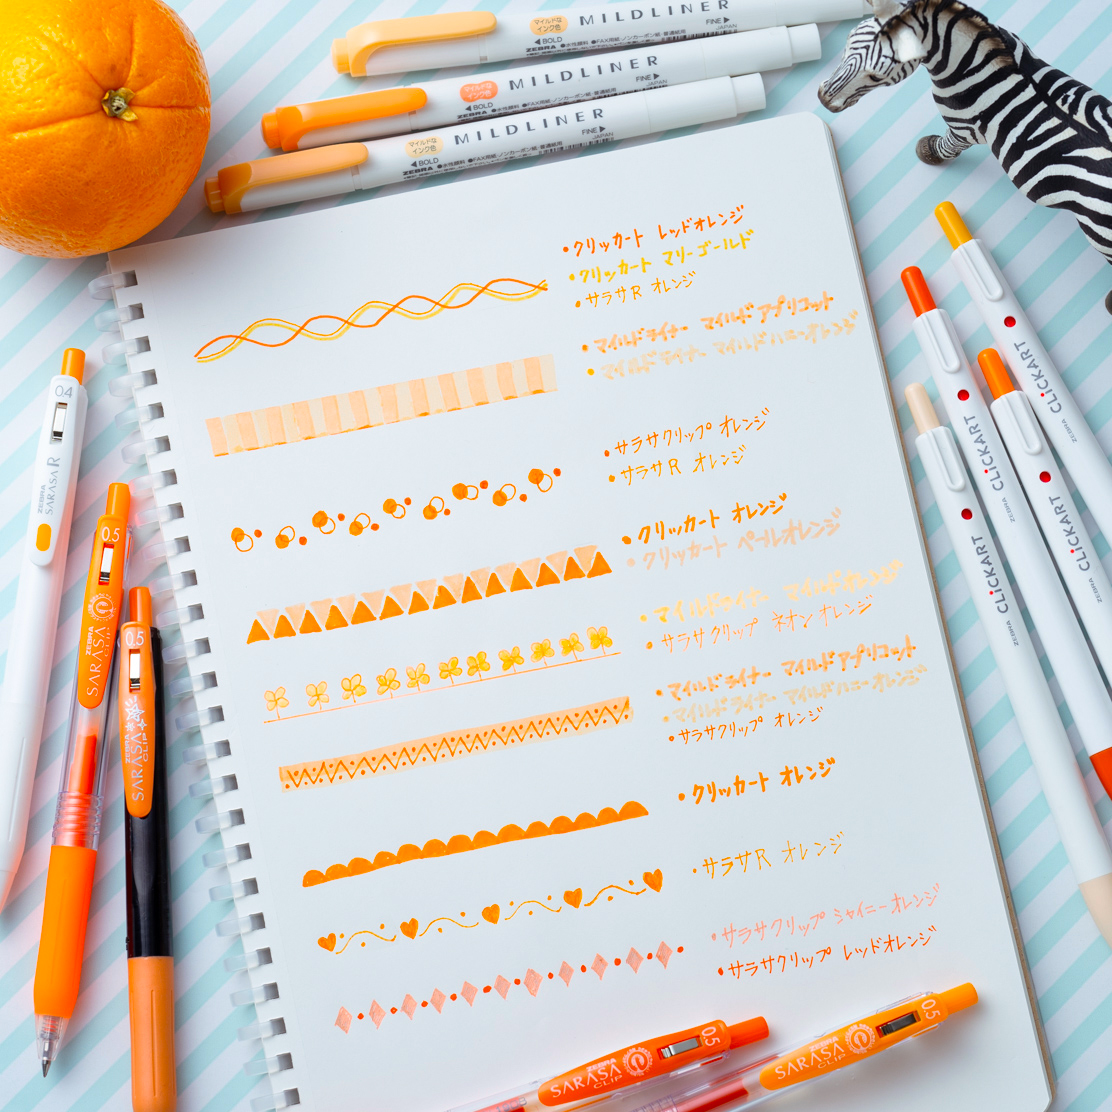 マイルドな
インク色
MILDLINER
◀BOLD
FINE▶
JAPAN
ZEBRA ●水性顔料 ●FAX用紙・ノンカーボン紙・普通紙用
マイルドな
インク色
MILDLINER
◀BOLD
FINE▶
JAPAN
ZEBRA ●水性顔料 ●FAX用紙・ノンカーボン紙・普通紙用
マイルドな
インク色
MILDLINER
◀BOLD
FINE▶
JAPAN
ZEBRA ●水性顔料 ●FAX用紙・ノンカーボン紙・普通紙用
•クリッカート レッドオレンジ
•クリッカート マリーゴールド
•サラサR オレンジ
•マイルドライナー マイルドアプリコット
•マイルドライナー マイルドハニーオレンジ
•サラサクリップ オレンジ
•サラサR オレンジ
•クリッカート オレンジ
•クリッカート ペールオレンジ
•マイルドライナー マイルドオレンジ
•サラサクリップ ネオンオレンジ
•マイルドライナー マイルドアプリコット
•マイルドライナー マイルドハニーオレンジ
•サラサクリップ オレンジ
•クリッカート オレンジ
•サラサR オレンジ
•サラサクリップ シャイニーオレンジ
•サラサクリップ レッドオレンジ
0.4
ZEBRA
SARASA R
0.5
ZEBRA
SARASA
CLIP
0.5
ZEBRA
SARASA
CLIP
ZEBRA CLiCKART
ZEBRA CLiCKART
ZEBRA CLiCKART
ZEBRA CLiCKART
ZEBRA
SARASA
CLIP
0.5
ZEBRA
SARASA
CLIP
0.5